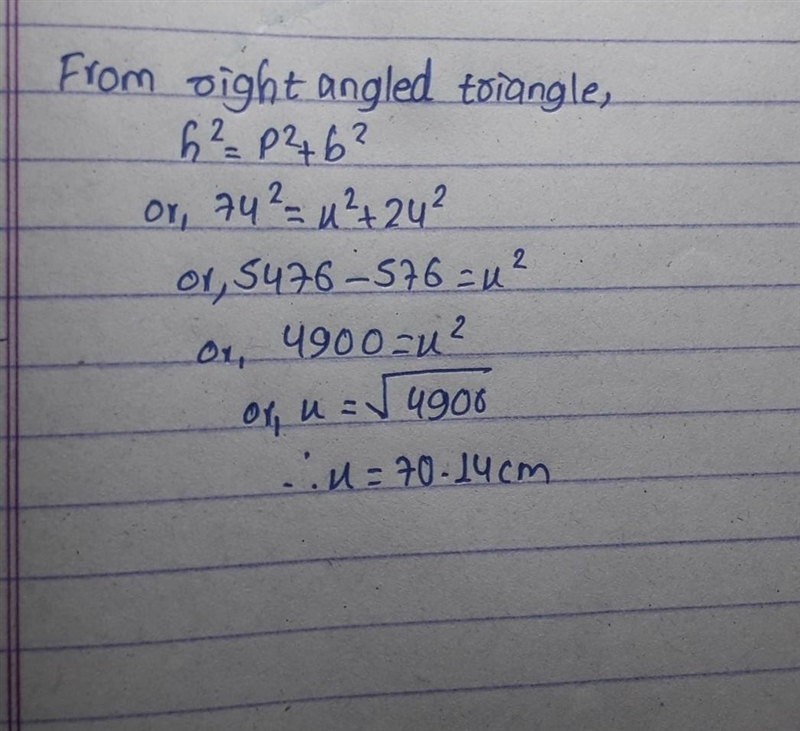 From right angled triangle,
h² = p² + b²
or, 74² = x² + 24²
or, 5476 - 576 = x²
or, 4900 = x²
or, x = √4900
∴ x = 70.14 cm